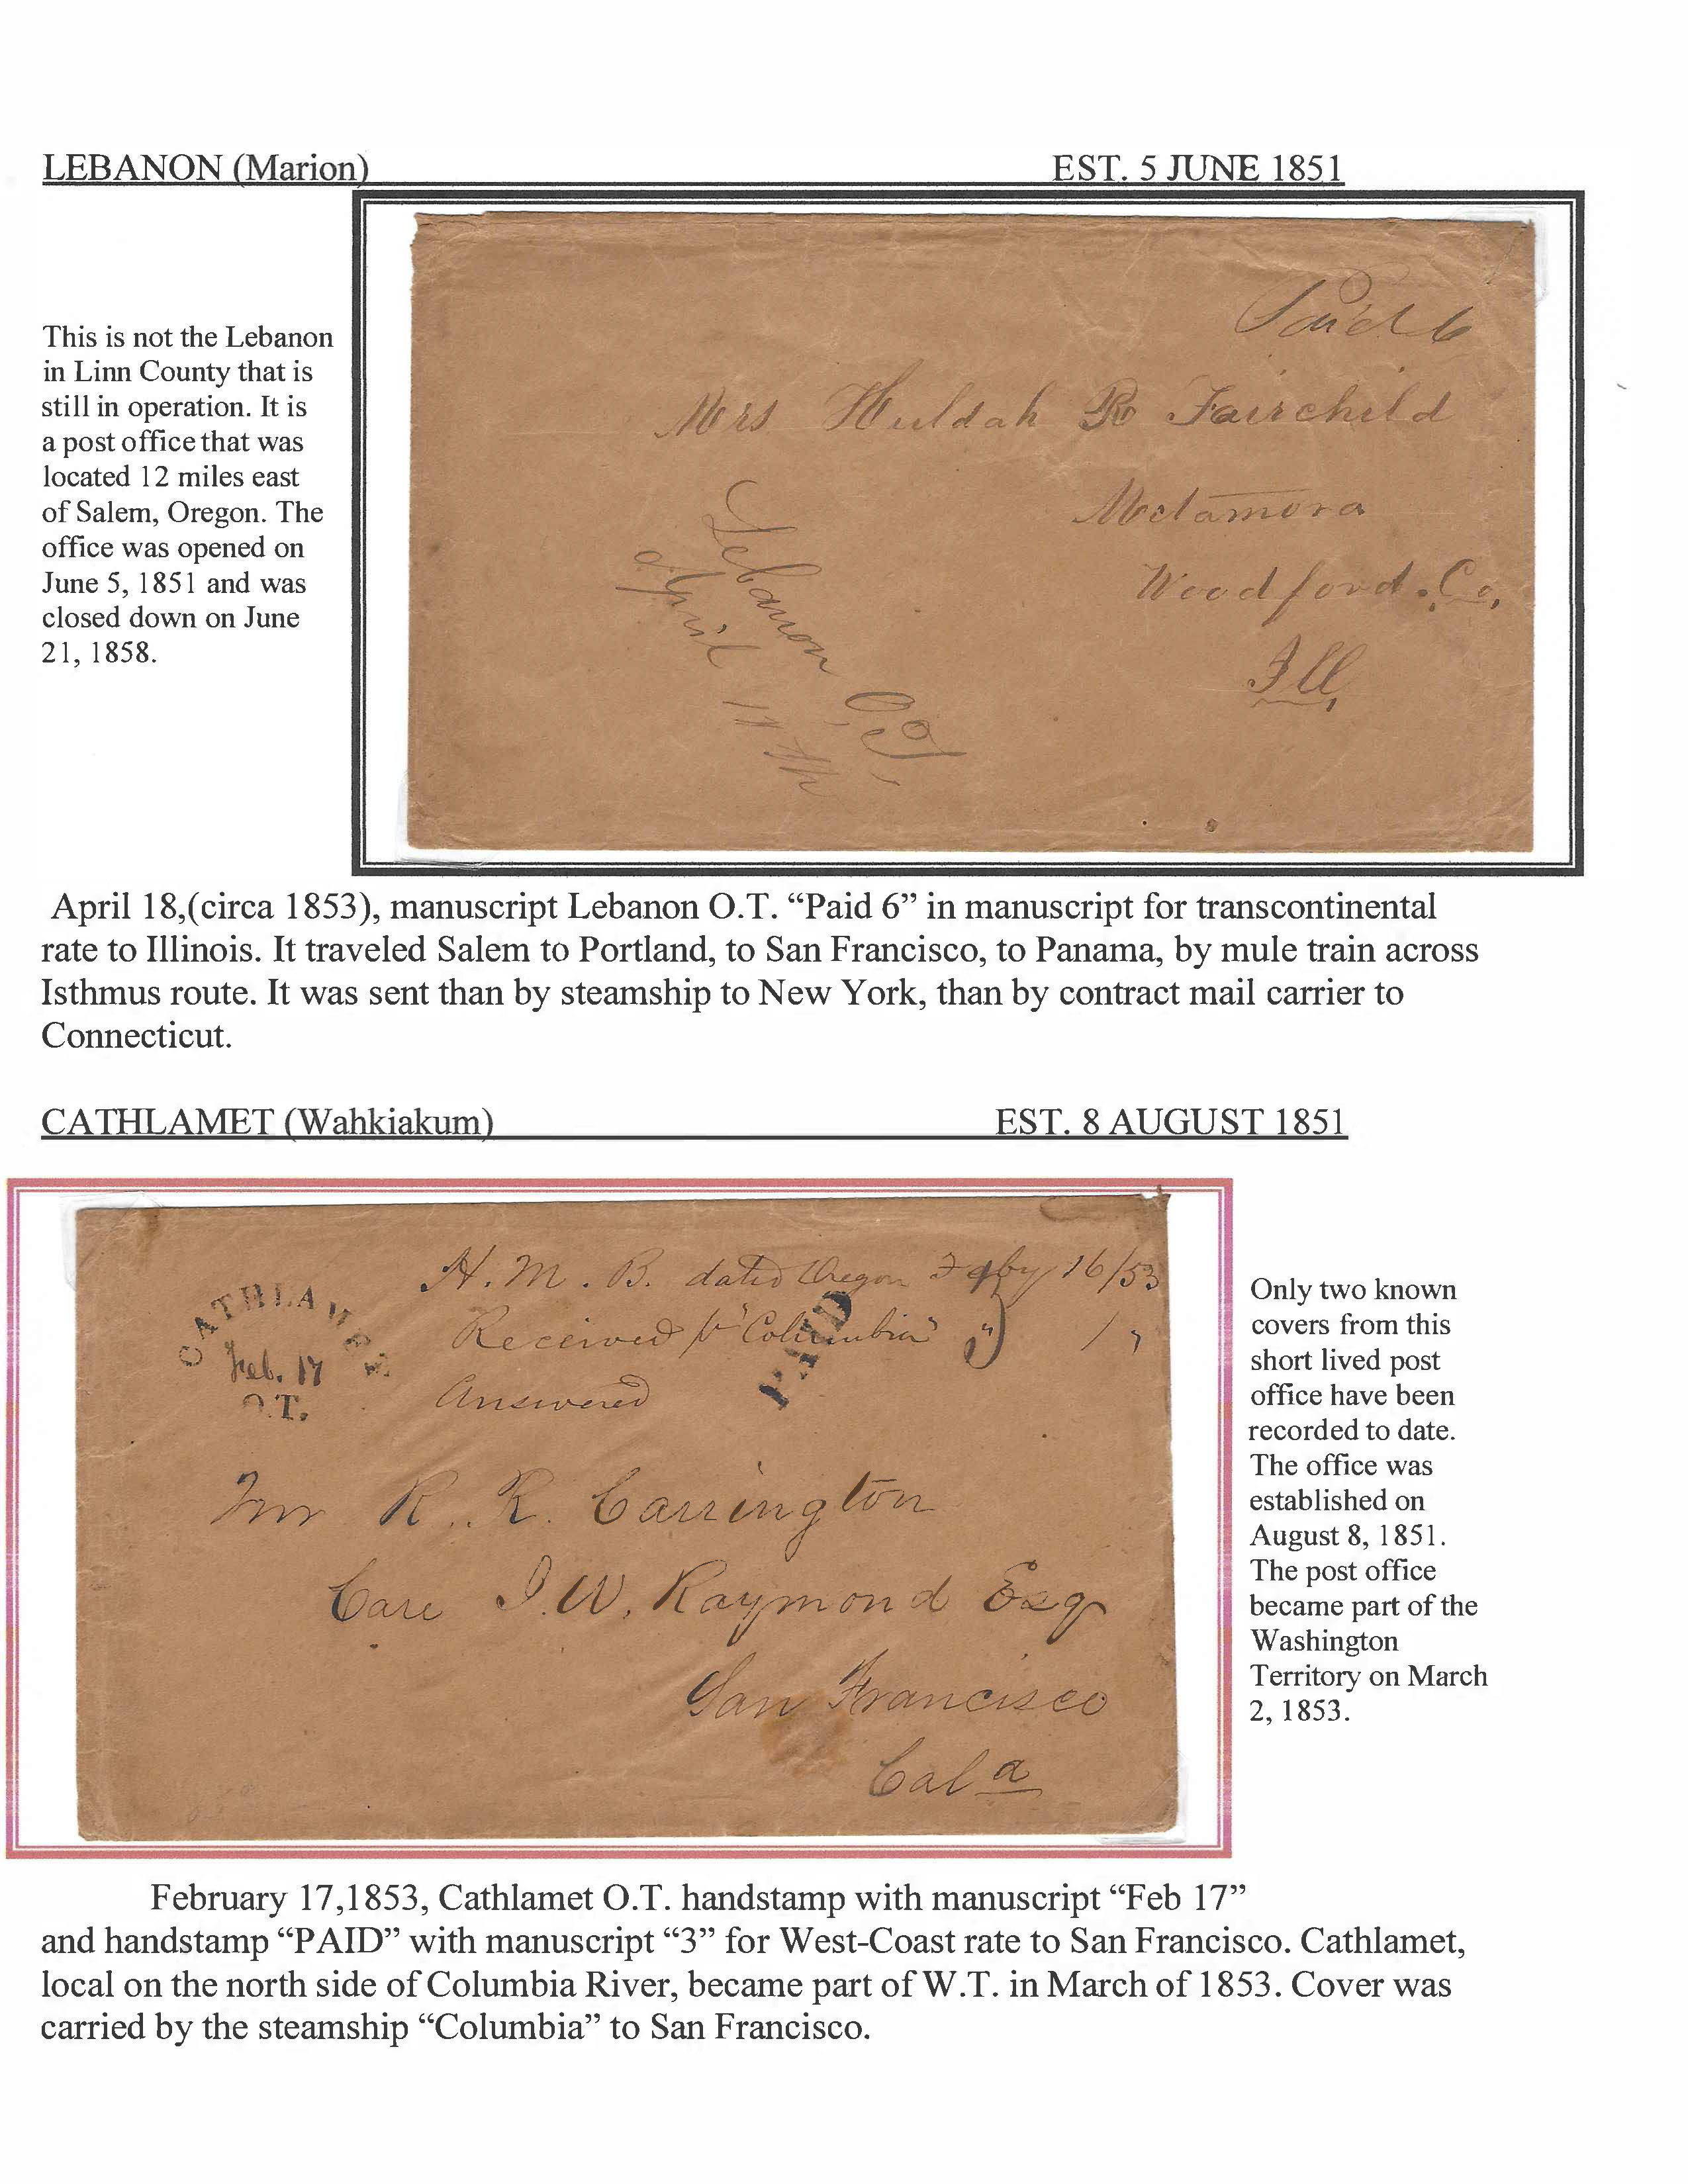 LEBANON (Marion) EST. 5 JUNE 1851
This is not the Lebanon
in Linn County that is
still in operation. It is
a post office that was
located 12 miles east
of Salem, Oregon. The
office was opened on
June 5, 1851 and was
closed down on June
21, 1858.
Paid 6
Mrs Huldah R Fairchild
Metamora
Woodford. Co,
Ill,
Lebanon O,T,
April 18th
April 18,(circa 1853), manuscript Lebanon O.T. “Paid 6” in manuscript for transcontinental
rate to Illinois. It traveled Salem to Portland, to San Francisco, to Panama, by mule train across
Isthmus route. It was sent than by steamship to New York, than by contract mail carrier to
Connecticut.
CATHLAMET (Wahkiakum) EST. 8 AUGUST 1851
CATHLAMET
Feb. 17
O.T.
H. M. B. dated Oregon Feby 16/53
Received pr "Columbia" "
PAID
3
Answered
Mr R. R. Carrington
Care I. W. Raymond Esq
San Francisco
Cala
Only two known
covers from this
short lived post
office have been
recorded to date.
The office was
established on
August 8, 1851.
The post office
became part of the
Washington
Territory on March
2, 1853.
February 17,1853, Cathlamet O.T. handstamp with manuscript “Feb 17”
and handstamp “PAID” with manuscript “3” for West-Coast rate to San Francisco. Cathlamet,
local on the north side of Columbia River, became part of W.T. in March of 1853. Cover was
carried by the steamship “Columbia” to San Francisco.